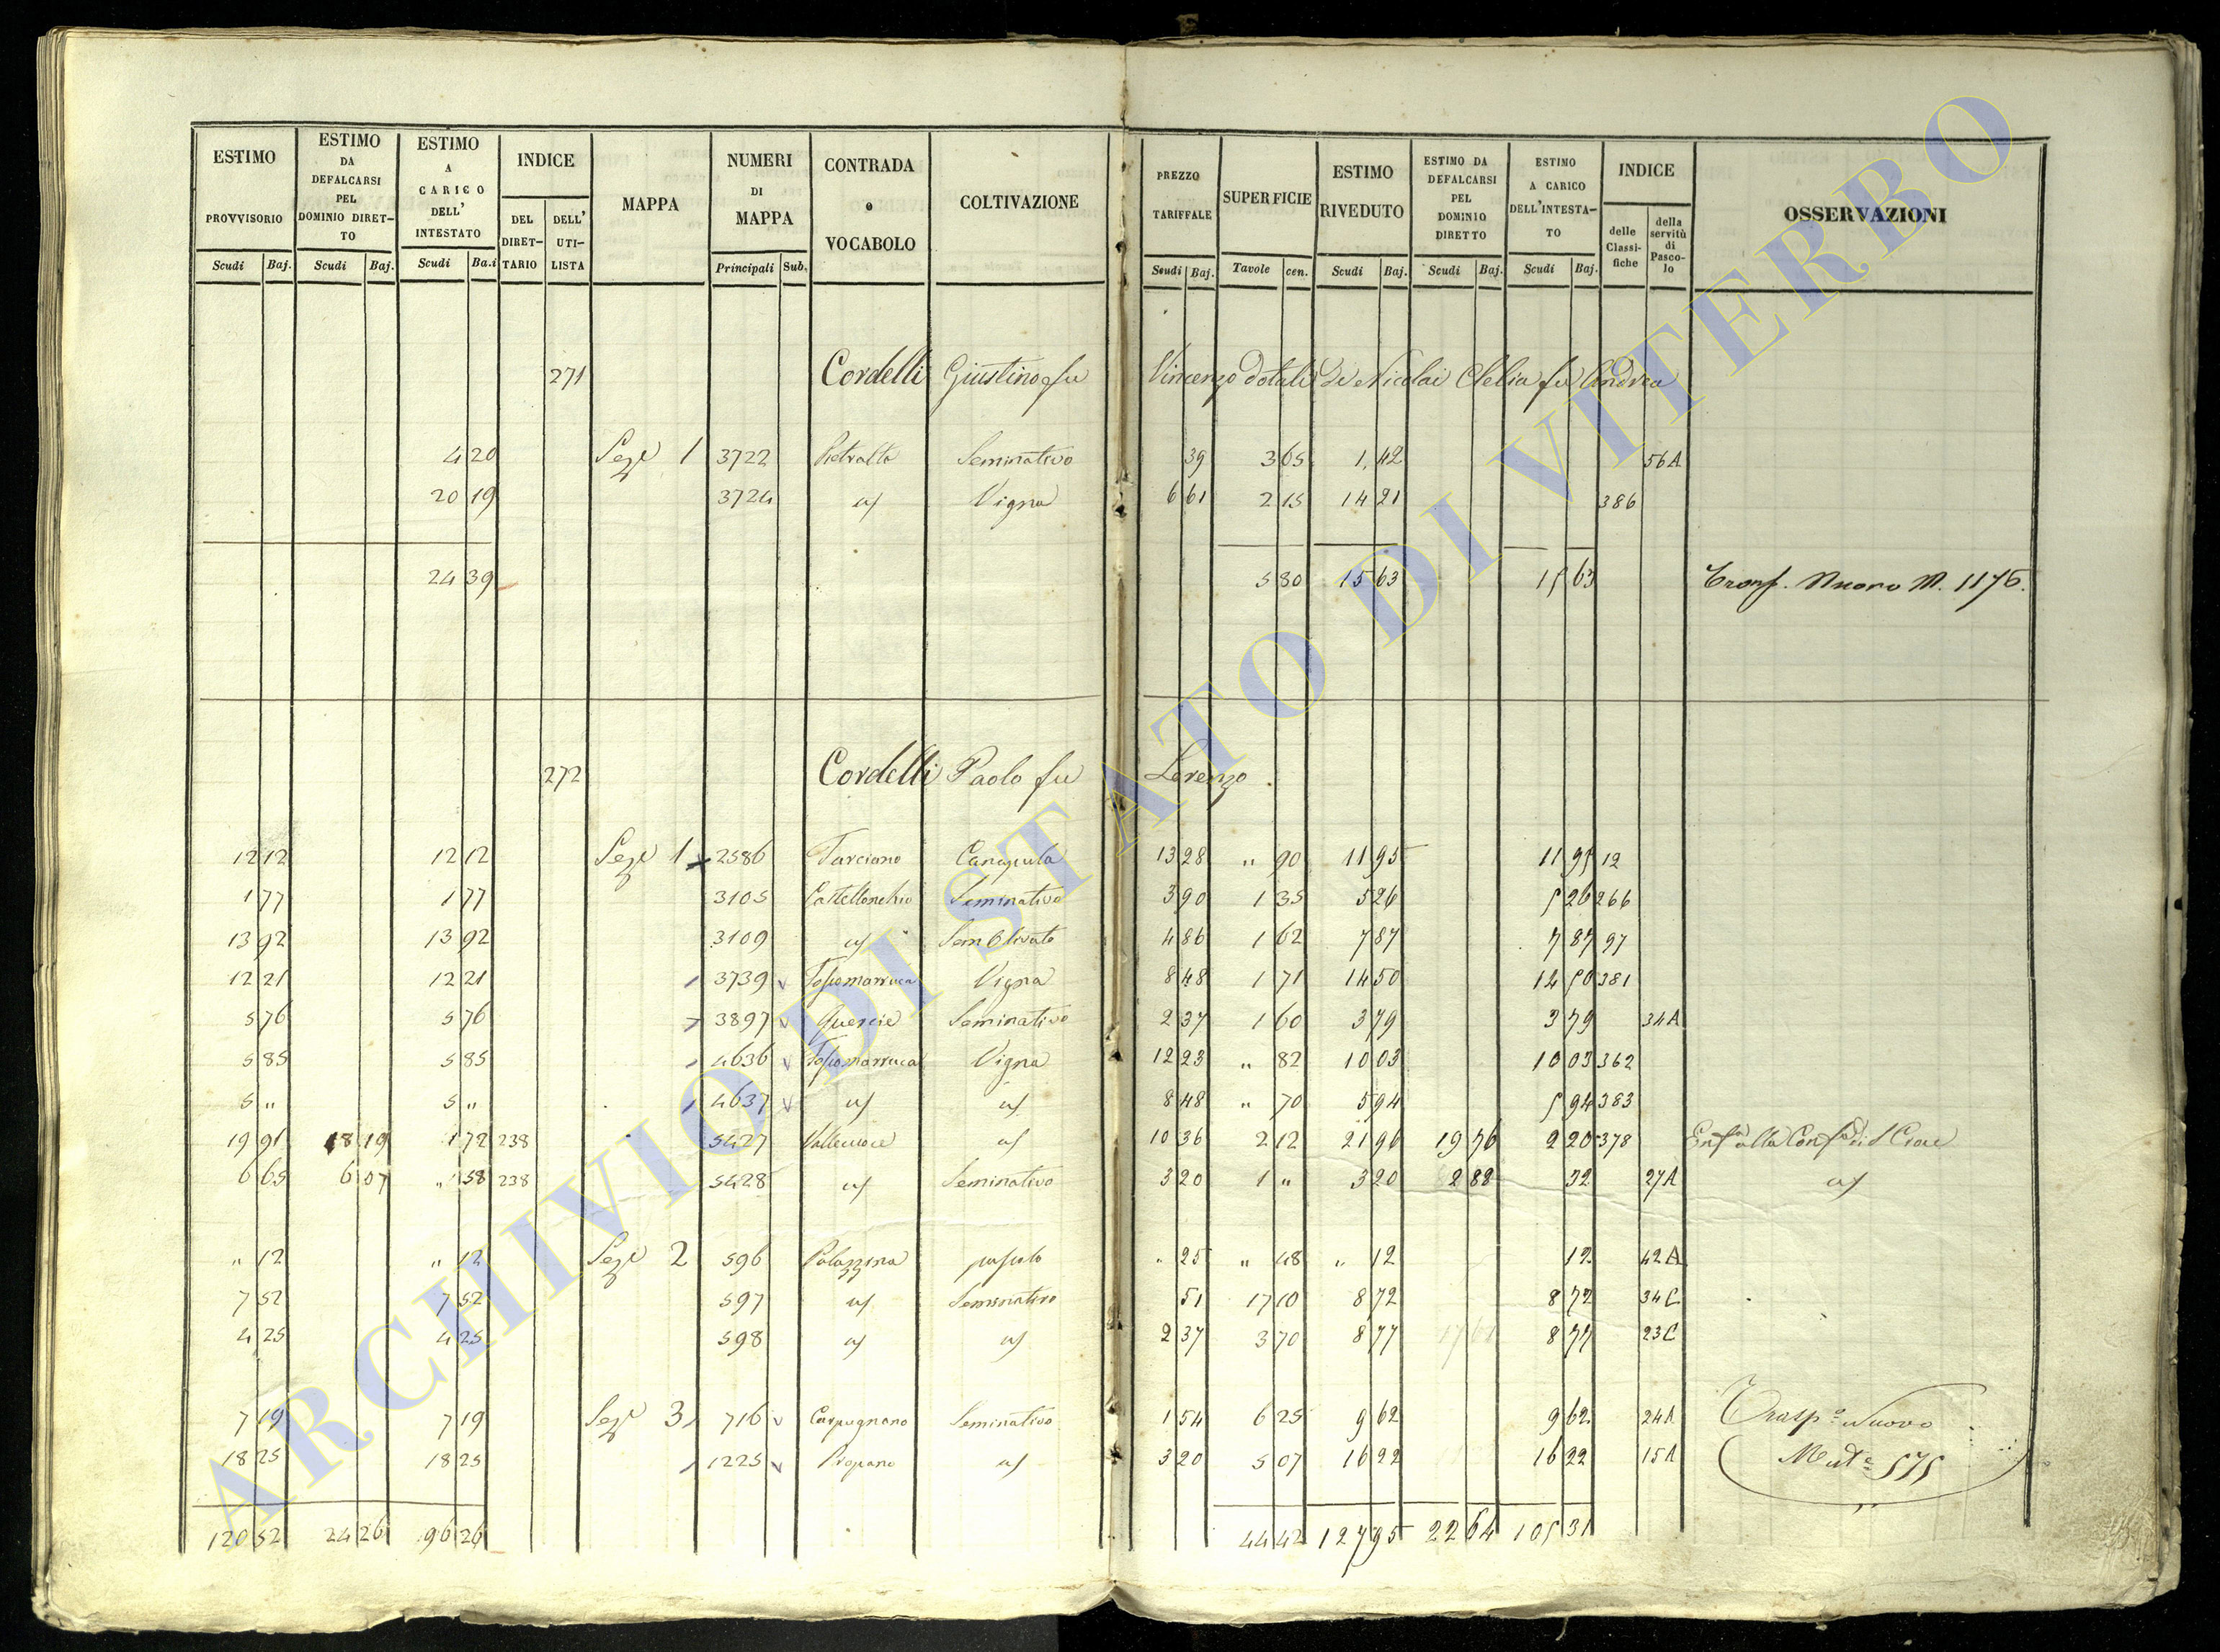 ESTIMO PROVVISORIO Scudi Baj.
ESTIMO DA DEFALCARSI PEL DOMINIO DIRET- TO Scudi Baj.
ESTIMO A CARICO DELL' INTESTATO Scudi Ba.i
INDICE DEL DIRET- TARIO DELL' UTI- LISTA
MAPPA
NUMERI DI MAPPA Principali Sub.
CONTRADA o VOCABOLO
COLTIVAZIONE
PREZZO TARIFFALE Scudi Baj.
SUPERFICIE Tavole cen.
ESTIMO RIVEDUTO Scudi Baj.
ESTIMO DA DEFALCARSI PEL DOMINIO DIRETTO Scudi Baj.
ESTIMO A CARICO DELL'INTESTA- TO Scudi Baj.
INDICE delle Classi- fiche della servitù di Pasco- lo
OSSERVAZIONI
271 Cordelli Giustino fu Vincenzo dotali di Nicolai Clelia fu Andrea
4 20 Sezе 1 3722 Pietralta Seminativo 39 3 65 1,42 56A
20 19 3724 a/ Vigna 6 61 2 15 14 21 386
24 39 5 80 15 63 15 63 Trasp. Nuovo N. 1176.
272 Cordelli Paolo fu Lorenzo
12 12 12 12 Sezе 1 2586 Tarciano Canapula 13 28 " 90 11 95 11 95 12
1 77 1 77 3105 Castellonchio Seminativo 3 90 1 35 5 26 5 26 266
13 92 13 92 3109 a/ Sem Olivato 4 86 1 62 7 87 7 87 97
12 21 12 21 3739 v Vigna 8 48 1 71 14 50 14 50 381
5 76 5 76 3897 v Quercie Seminativo 2 37 1 60 3 79 3 79 34A
5 85 5 85 4636 v Vigna 12 23 " 82 10 03 10 03 362
5 " 5 " 4637 v a/ a/ 8 48 " 70 5 94 5 94 383
19 91 18 19 1 72 238 5427 Vallecuoce a/ 10 36 2 12 21 96 19 76 2 20 378
6 65 6 07 " 58 238 5428 a/ Seminativo 3 20 1 " 3 20 2 88 32 27A a/
" 12 " 12 Sezе 2 596 Palazzina pascolo " 25 " 48 " 12 12 42A
7 52 7 52 597 a/ Seminativo 51 17 10 8 72 8 72 34C
4 25 4 25 598 a/ a/ 2 37 3 70 8 77 8 77 23C
7 19 7 19 Sezе 3 716 v Carpugnano Seminativo 1 54 6 25 9 62 9 62 24A Trasp.o Nuovo
18 25 18 25 1225 v a/ 3 20 5 07 16 22 16 22 15A 575
120 52 24 26 96 26 44 42 127 95 22 64 105 31
ARCHIVIO DI STATO DI VITERBO